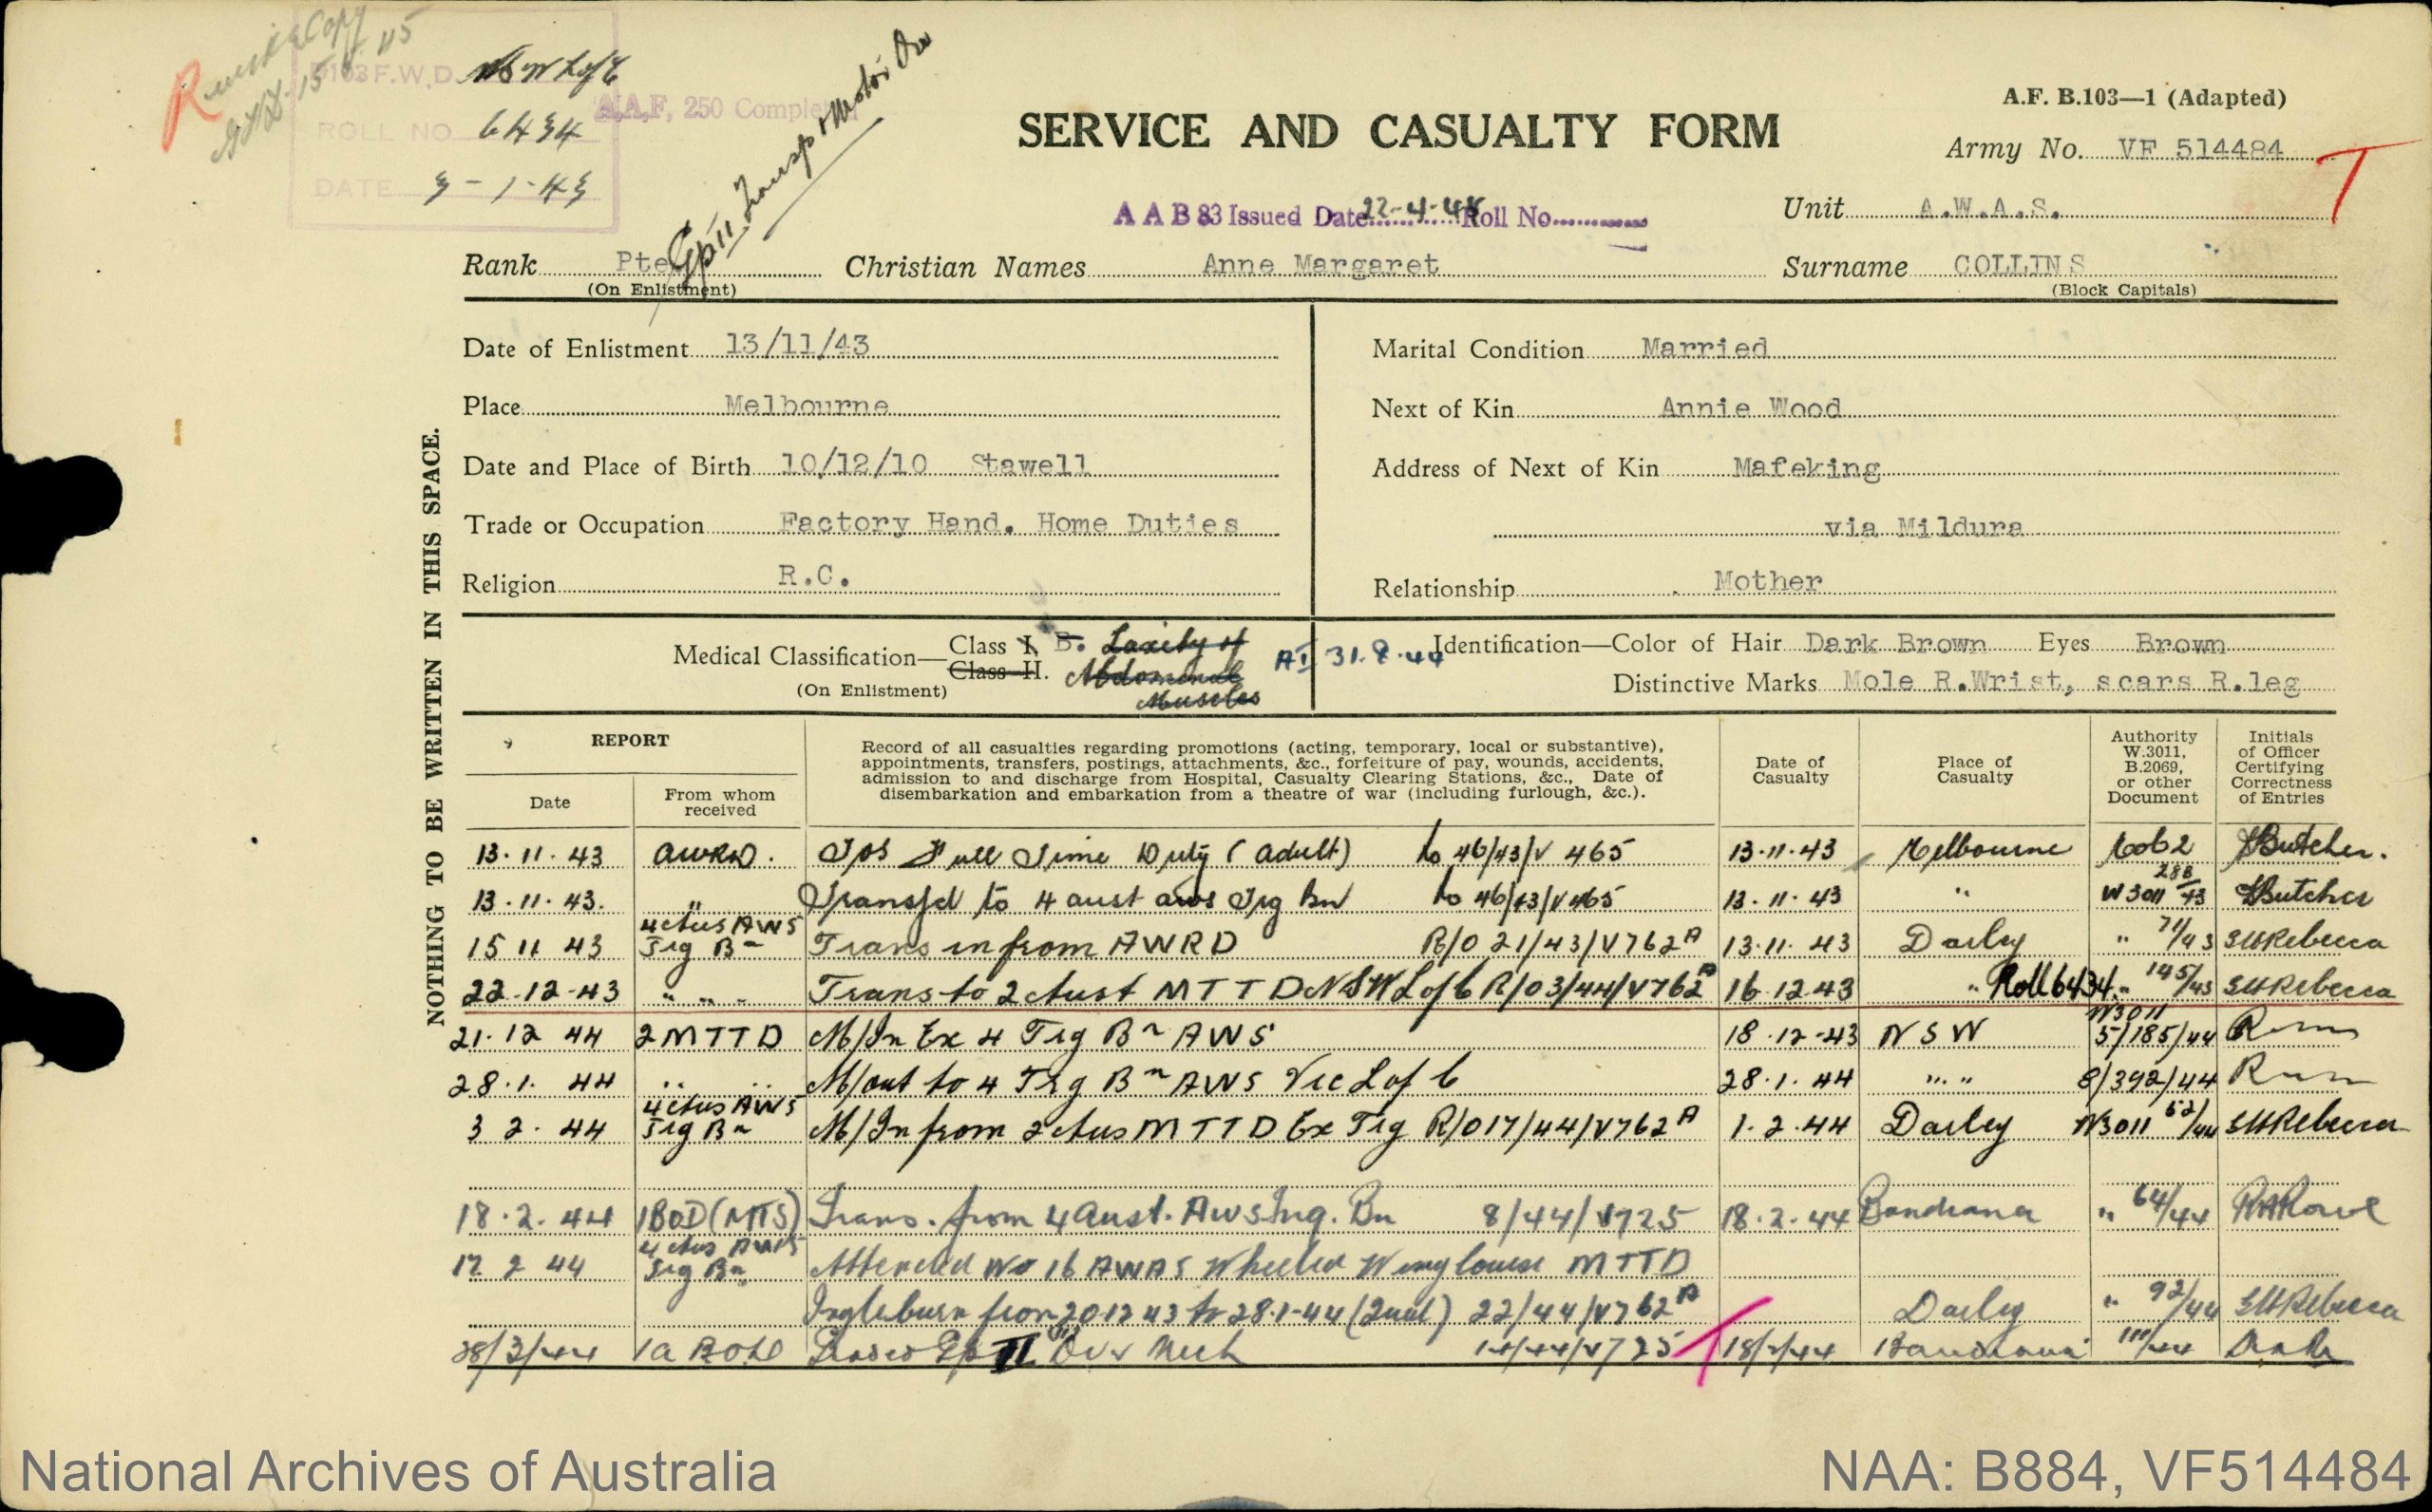 Copy
B103 F.W.D. NSW L of C
ROLL NO 6434
DATE 3-1-43
A.A.F. 250 Completed
Gp II Transp & Motor Dvr
SERVICE AND CASUALTY FORM
A.F. B.103—1 (Adapted)
Army No. VF 514484
T
A A B 83 Issued Date 22-4-48 Roll No.
Unit A.W.A.S.
Rank Pte. Christian Names Anne Margaret Surname COLLINS
(On Enlistment) (Block Capitals)
NOTHING TO BE WRITTEN IN THIS SPACE.
Date of Enlistment 13/11/43
Place Melbourne
Date and Place of Birth 10/12/10 Stawell
Trade or Occupation Factory Hand. Home Duties
Religion R.C.
Marital Condition Married
Next of Kin Annie Wood
Address of Next of Kin Mafeking
via Mildura
Relationship Mother
Medical Classification— Class I. B. Laxity of
Class II. Abdominal
(On Enlistment) Muscles
A I 31.8.44
Identification—Color of Hair Dark Brown Eyes Brown
Distinctive Marks Mole R.Wrist, scars R.leg
REPORT
Date
From whom received
Record of all casualties regarding promotions (acting, temporary, local or substantive),
appointments, transfers, postings, attachments, &c., forfeiture of pay, wounds, accidents,
admission to and discharge from Hospital, Casualty Clearing Stations, &c., Date of
disembarkation and embarkation from a theatre of war (including furlough, &c.).
Date of Casualty
Place of Casualty
Authority W.3011, B.2069, or other Document
Initials of Officer Certifying Correctness of Entries
13.11.43 AWRD. TOS Full Time Duty (adult) to 46/43/V 465 13.11.43 Melbourne Mob 2 Butcher.
13.11.43. " Transfd to 4 aust aws Trg Bn to 46/43/V465 13.11.43 " W3011 288/43 Butcher
15 11 43 4 Aus AWS Trg Bn Trans in from AWRD R/O 21/43/V762A 13.11.43 Darley " 71/43 Rebecca
22-12-43 " " " Trans to 2 Aust MTTD NSW L of C R/O 3/44/V762A 16 12 43 " Roll 6434 " 145/43 Rebecca
21.12 44 2 MTTD M/In Ex 4 Trg Bn AWS 18.12.43 NSW W3011 5/185/44
28.1.44 " " M/out to 4 Trg Bn AWS Vic L of C 28.1.44 " " 8/392/44
3 2.44 4 Aus AWS Trg Bn M/In from 2 Aus MTTD Ex Trg R/O 17/44/V762A 1.2.44 Darley W3011 52/44 Rebecca
18.2.44 1 BOD (MTS) Trans. from 4 Aust. AWS Trg. Bn 8/44/V725 18.2.44 Bandiana " 64/44
17 2 44 4 Aus AWS Trg Bn Attended No 16 AWAS Wheeled MTTD
Ingleburn from 20 12 43 to 28.1.44 22/44/V762A Darley " 92/44 Rebecca
28/3/44 Gp II Dvr Mech 14/44/V725 18/2/44 Bandiana 111/44
National Archives of Australia
NAA: B884, VF514484